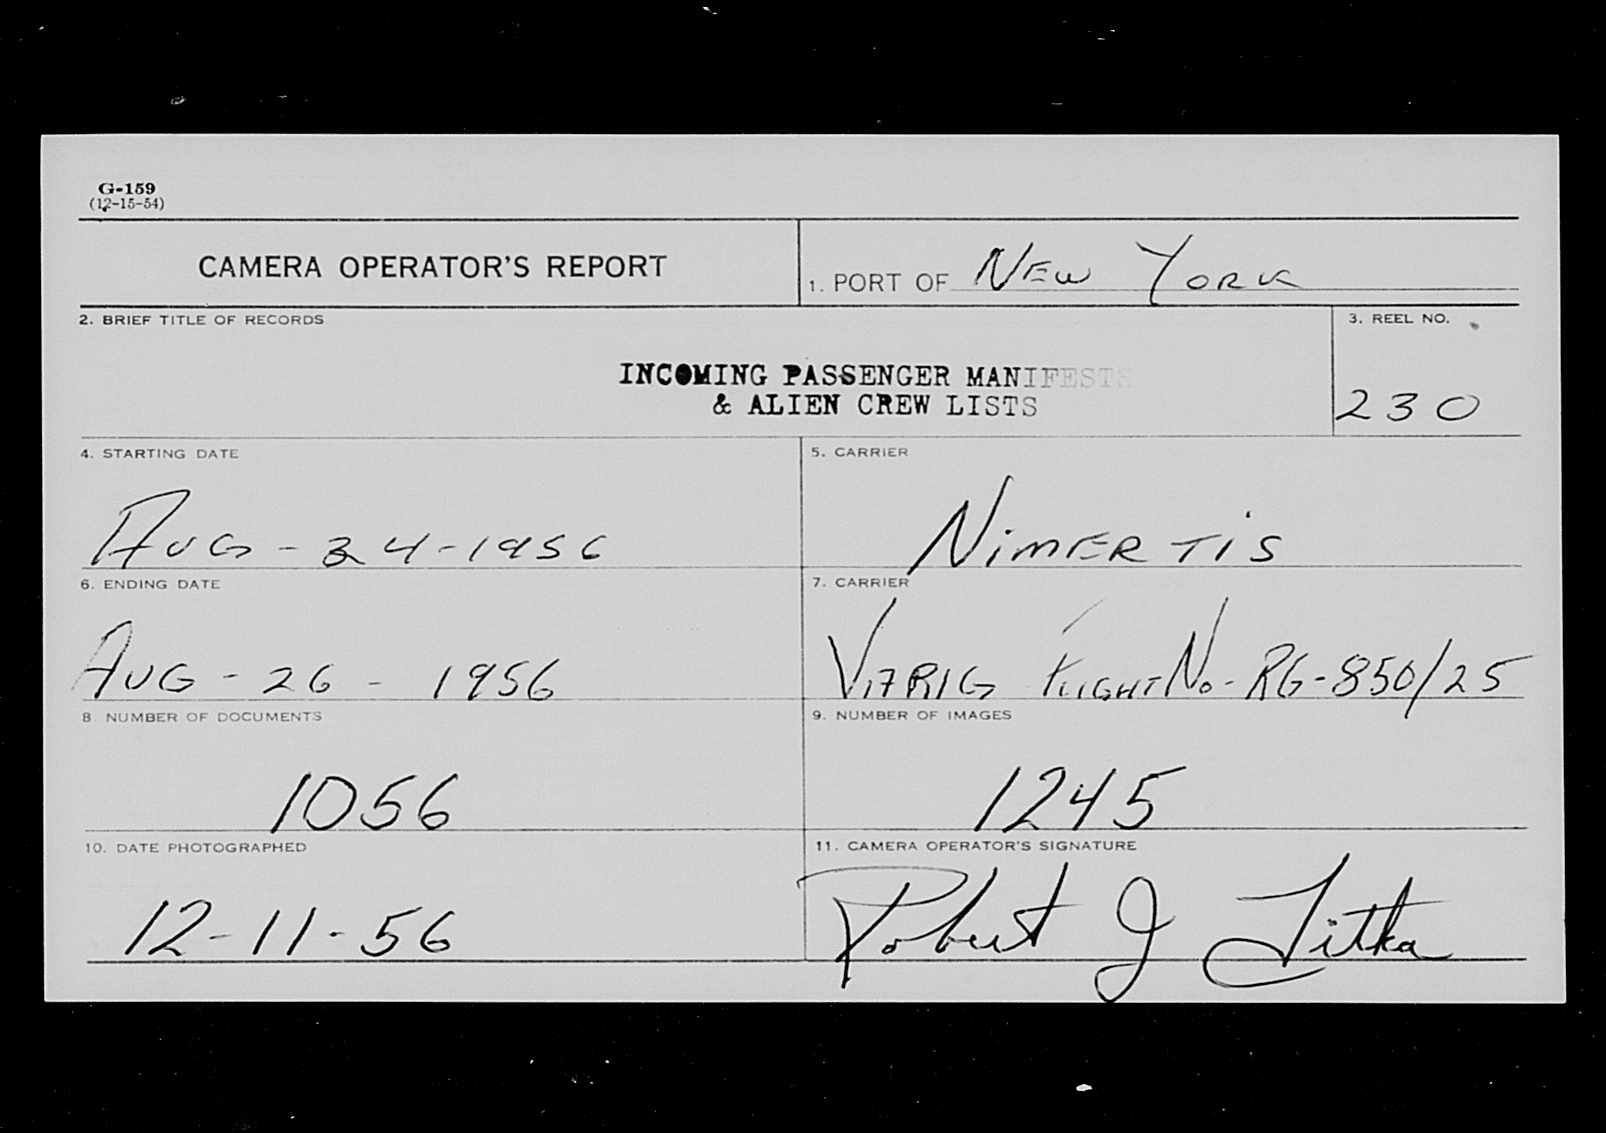 G-159
(12-15-54)
CAMERA OPERATOR'S REPORT
1. PORT OF New York
2. BRIEF TITLE OF RECORDS
3. REEL NO.
INCOMING PASSENGER MANIFESTS
& ALIEN CREW LISTS
230
4. STARTING DATE
5. CARRIER
Aug - 24-1956
NimERTis
6. ENDING DATE
7. CARRIER
AUG - 26 - 1956
Flight No- RG-850/25
8. NUMBER OF DOCUMENTS
9. NUMBER OF IMAGES
1056
1245
10. DATE PHOTOGRAPHED
11. CAMERA OPERATOR'S SIGNATURE
12-11-56
Robert J